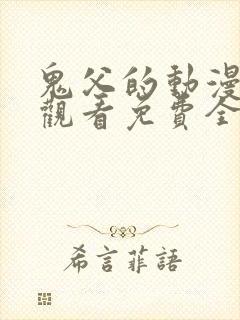 鬼父的動漫
觀看免費全
希言菲語